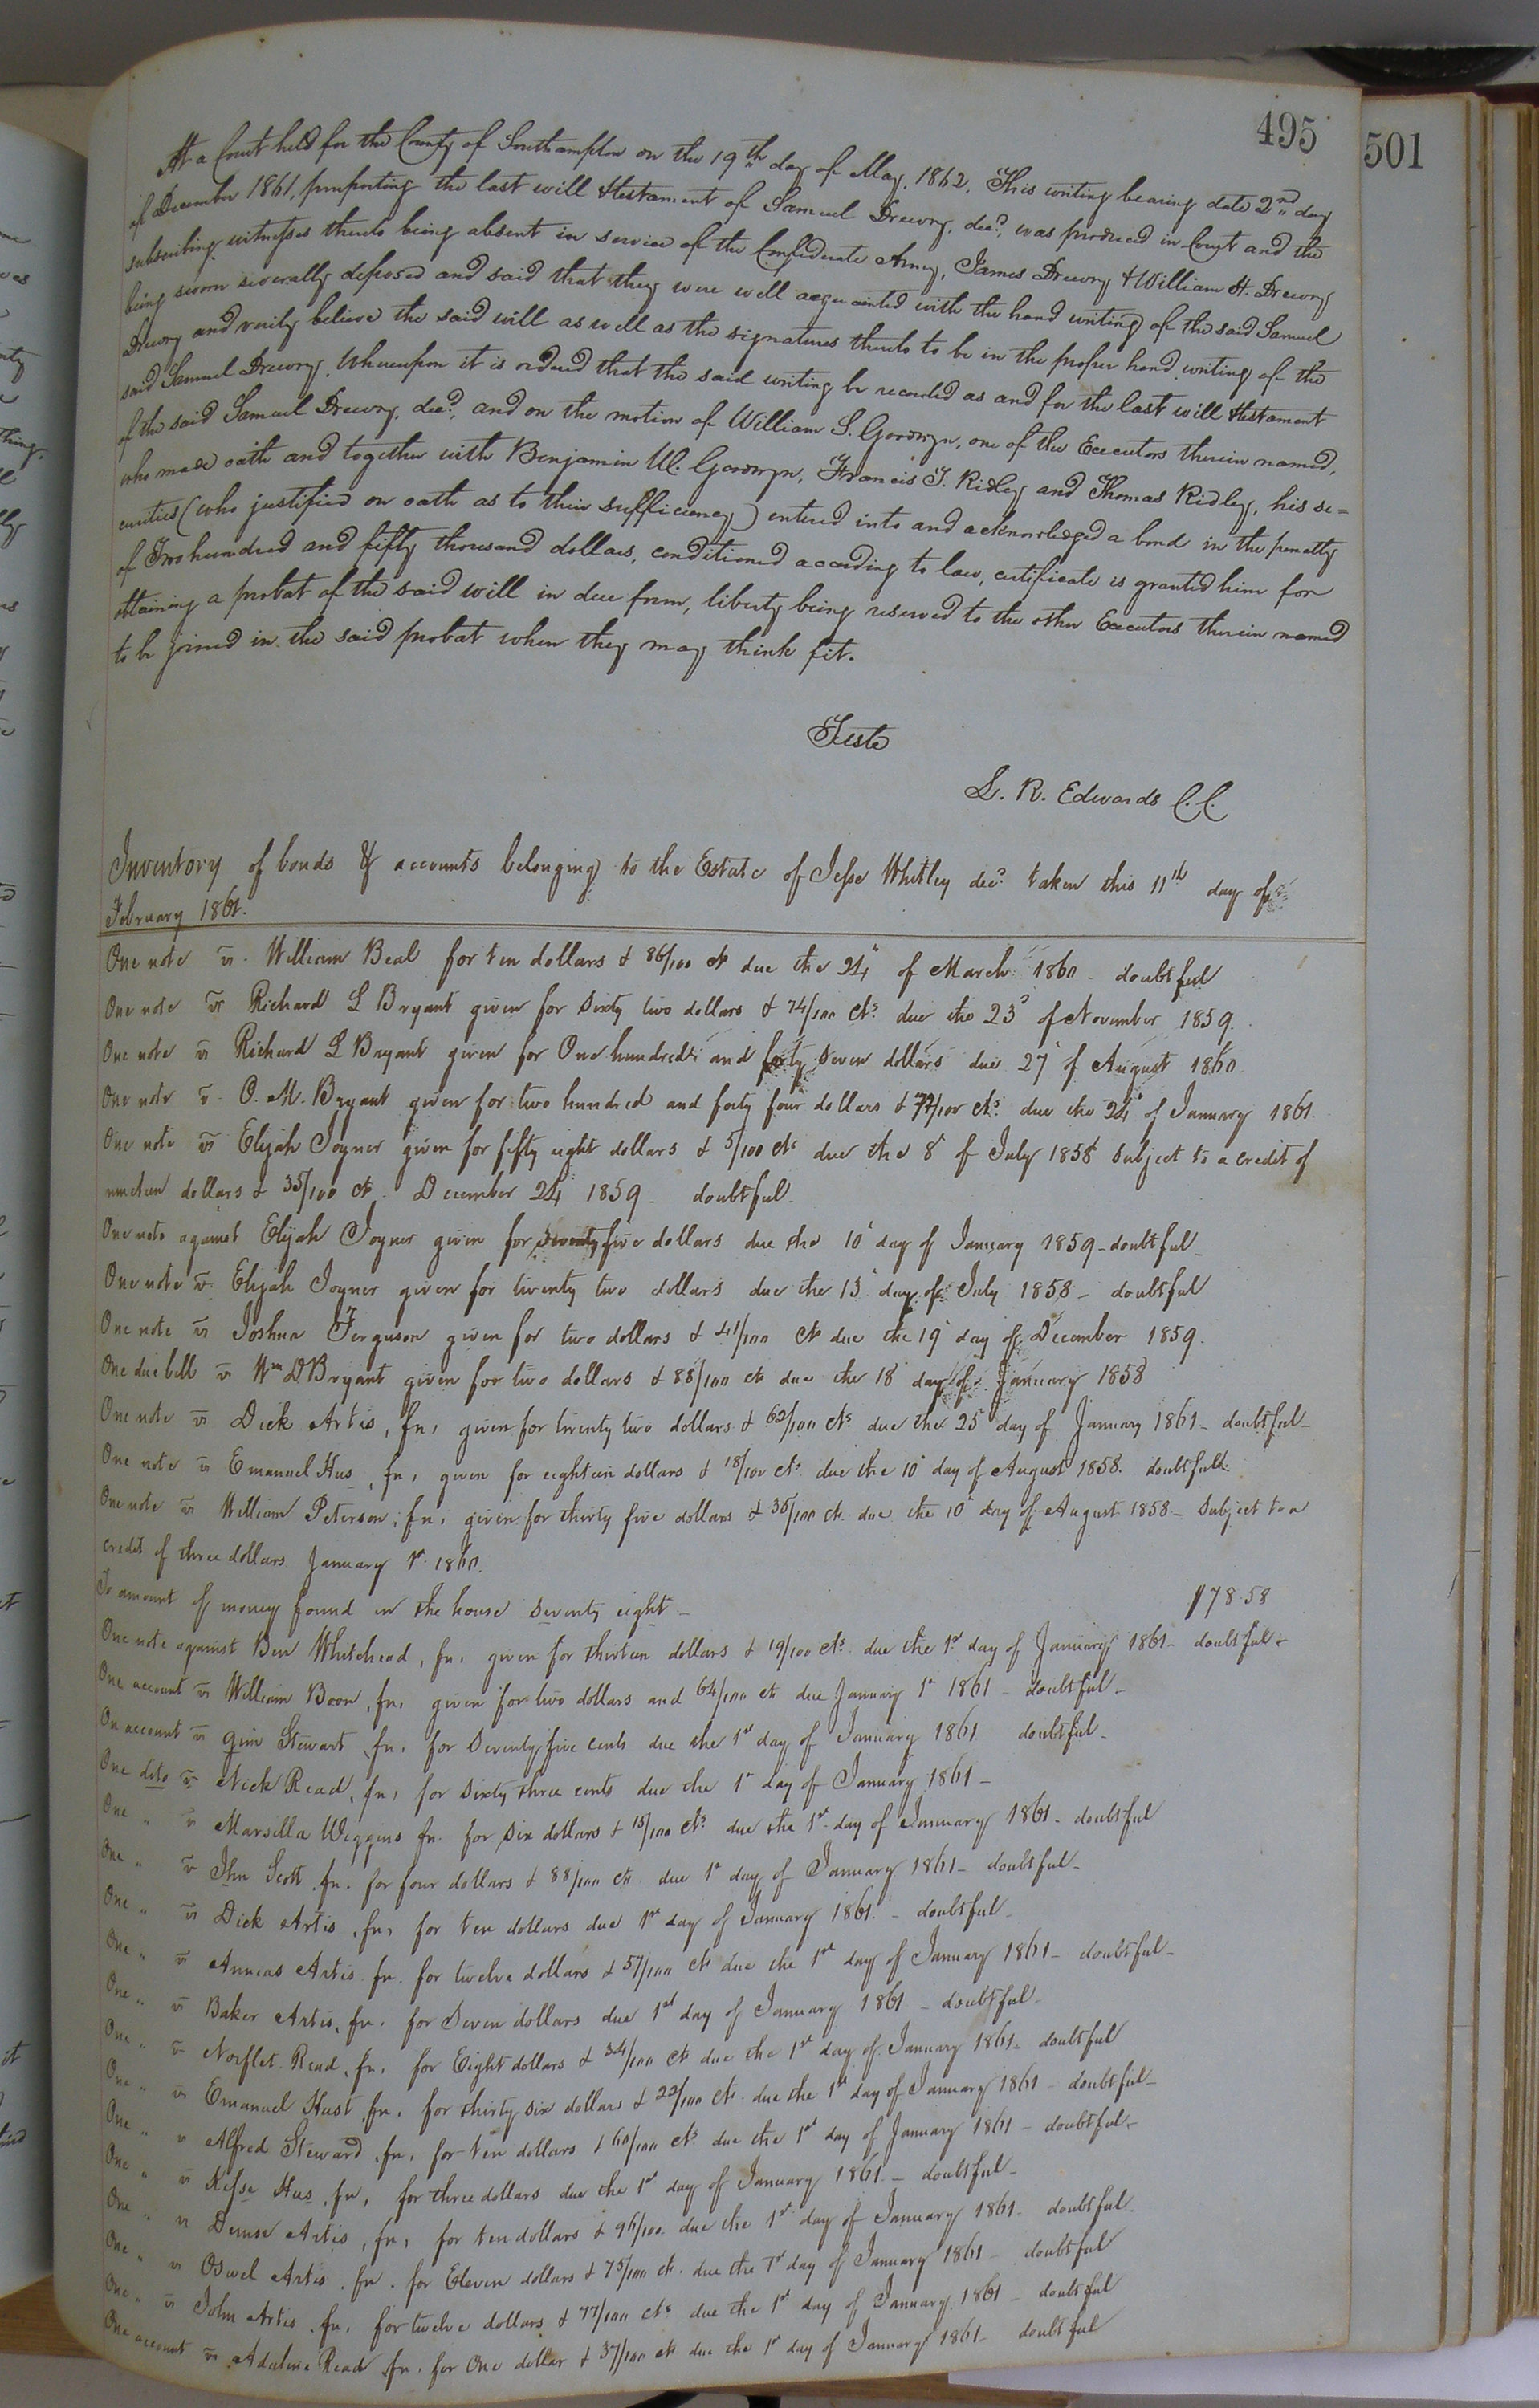 495
501
At a Court held for the County of Southampton on the 19th day of May, 1862, This writing bearing date 2nd day
of December 1861, purporting the last will & testament of Samuel Drewry, decd, was produced in Court and the
subscribing witnesses thereto being absent in service of the Confederate Army, James Drewry & William H. Drewry
being sworn severally deposed and said that they were well acquainted with the hand writing of the said Samuel
Drewry and verily believe the said will as well as the signatures thereto to be in the proper hand writing of the
said Samuel Drewry, Whereupon it is ordered that the said writing be recorded as and for the last will & testament
of the said Samuel Drewry, decd, and on the motion of William S. Goodwyn, one of the Executors therein named,
who made oath and together with Benjamin W. Goodwyn, Francis T. Ridley and Thomas Ridley, his se=
curities (who justified on oath as to their sufficiency) entered into and acknowledged a bond in the penalty
of Two hundred and fifty thousand dollars, conditioned according to law, certificate is granted him for
obtaining a probat of the said will in due form, liberty being reserved to the other Executors therein named
to be joined in the said probat when they may think fit.
Teste
L. R. Edwards C.C.
Inventory of bonds & accounts belonging to the Estate of Jesse Whitley decd taken this 11th day of
February 1861.
One note vs. William Beal for ten dollars & 86/100 cts due the 24 of March 1860 - doubtful
One note vs Richard L Bryant given for sixty two dollars & 74/100 cts. due the 23d of November 1859.
One note vs Richard L Bryant given for One hundred and forty seven dollars due 27 of August 1860
One note vs. O. M. Bryant given for two hundred and forty four dollars & 77/100 cts. due the 24 of January 1861.
One note vs Elijah Joyner given for fifty eight dollars & 5/100 cts due the 8 of July 1858 subject to a credit of
nineteen dollars & 35/100 cts. December 24 1859 - doubtful.
One note against Elijah Joyner given for seventy five dollars due the 10 day of January 1859 - doubtful
One note vs. Elijah Joyner given for twenty two dollars due the 13 day of July 1858 - doubtful
One note vs Joshua Ferguson given for two dollars & 41/100 cts due the 19 day of December 1859.
One due bill vs Wm D Bryant given for two dollars & 88/100 cts due the 18 day of January 1858
One note vs Dick Artis, fn, given for twenty two dollars & 62/100 cts. due the 25 day of January 1861 - doubtful -
One note vs Emanuel Hus, fn, given for eighteen dollars & 18/100 cts. due the 10 day of August 1858. doubtful.
One note vs William Peterson, fn, given for thirty five dollars & 35/100 cts. due the 10 day of August 1858 - subject to a
credit of three dollars January 1st 1860.
To amount of money found in the house seventy eight - $78.58
One note against Ben Whitehead, fn, given for thirteen dollars & 19/100 cts. due the 1st day of January 1861 - doubtful -
One account vs William Boon, fn, given for two dollars and 64/100 cts due January 1st 1861 - doubtful -
On account vs Jim Stewart, fn, for Seventy five cents due the 1st day of January 1861 doubtful -
One dito vs Nick Read, fn, for sixty three cents due the 1st day of January 1861 -
One " vs Marsilla Wiggins fn. for six dollars & 15/100 cts. due the 1st day of January 1861 - doubtful
One " vs Jhn Scott, fn. for four dollars & 88/100 cts due 1st day of January 1861 - doubtful -
One " vs Dick Artis, fn, for ten dollars due 1st day of January 1861. - doubtful -
One " vs Annias Artis fn. for twelve dollars & 57/100 cts due the 1st day of January 1861 - doubtful -
One " vs Baker Artis, fn, for seven dollars due 1st day of January 1861 - doubtful -
One " vs Norflet Read, fn, for Eight dollars & 34/100 cts due the 1st day of January 1861 - doubtful
One " vs Emanuel Hust, fn, for thirty six dollars & 22/100 cts. due the 1st day of January 1861 - doubtful -
One " vs Alfred Steward, fn, for ten dollars & 60/100 cts due the 1st day of January 1861 - doubtful -
One " vs Hus, fn, for three dollars due the 1st day of January 1861 - doubtful -
One " vs Artis, fn, for ten dollars & 96/100 due the 1st day of January 1861 doubtful.
One " vs Oswel Artis, fn. for Eleven dollars & 75/100 cts. due the 1st day of January 1861 - doubtful
One " vs John Artis, fn, for twelve dollars & 77/100 cts due the 1st day of January 1861 - doubtful
One account vs Adaline Read, fn. for One dollar & 37/100 cts due the 1st day of January 1861 - doubtful